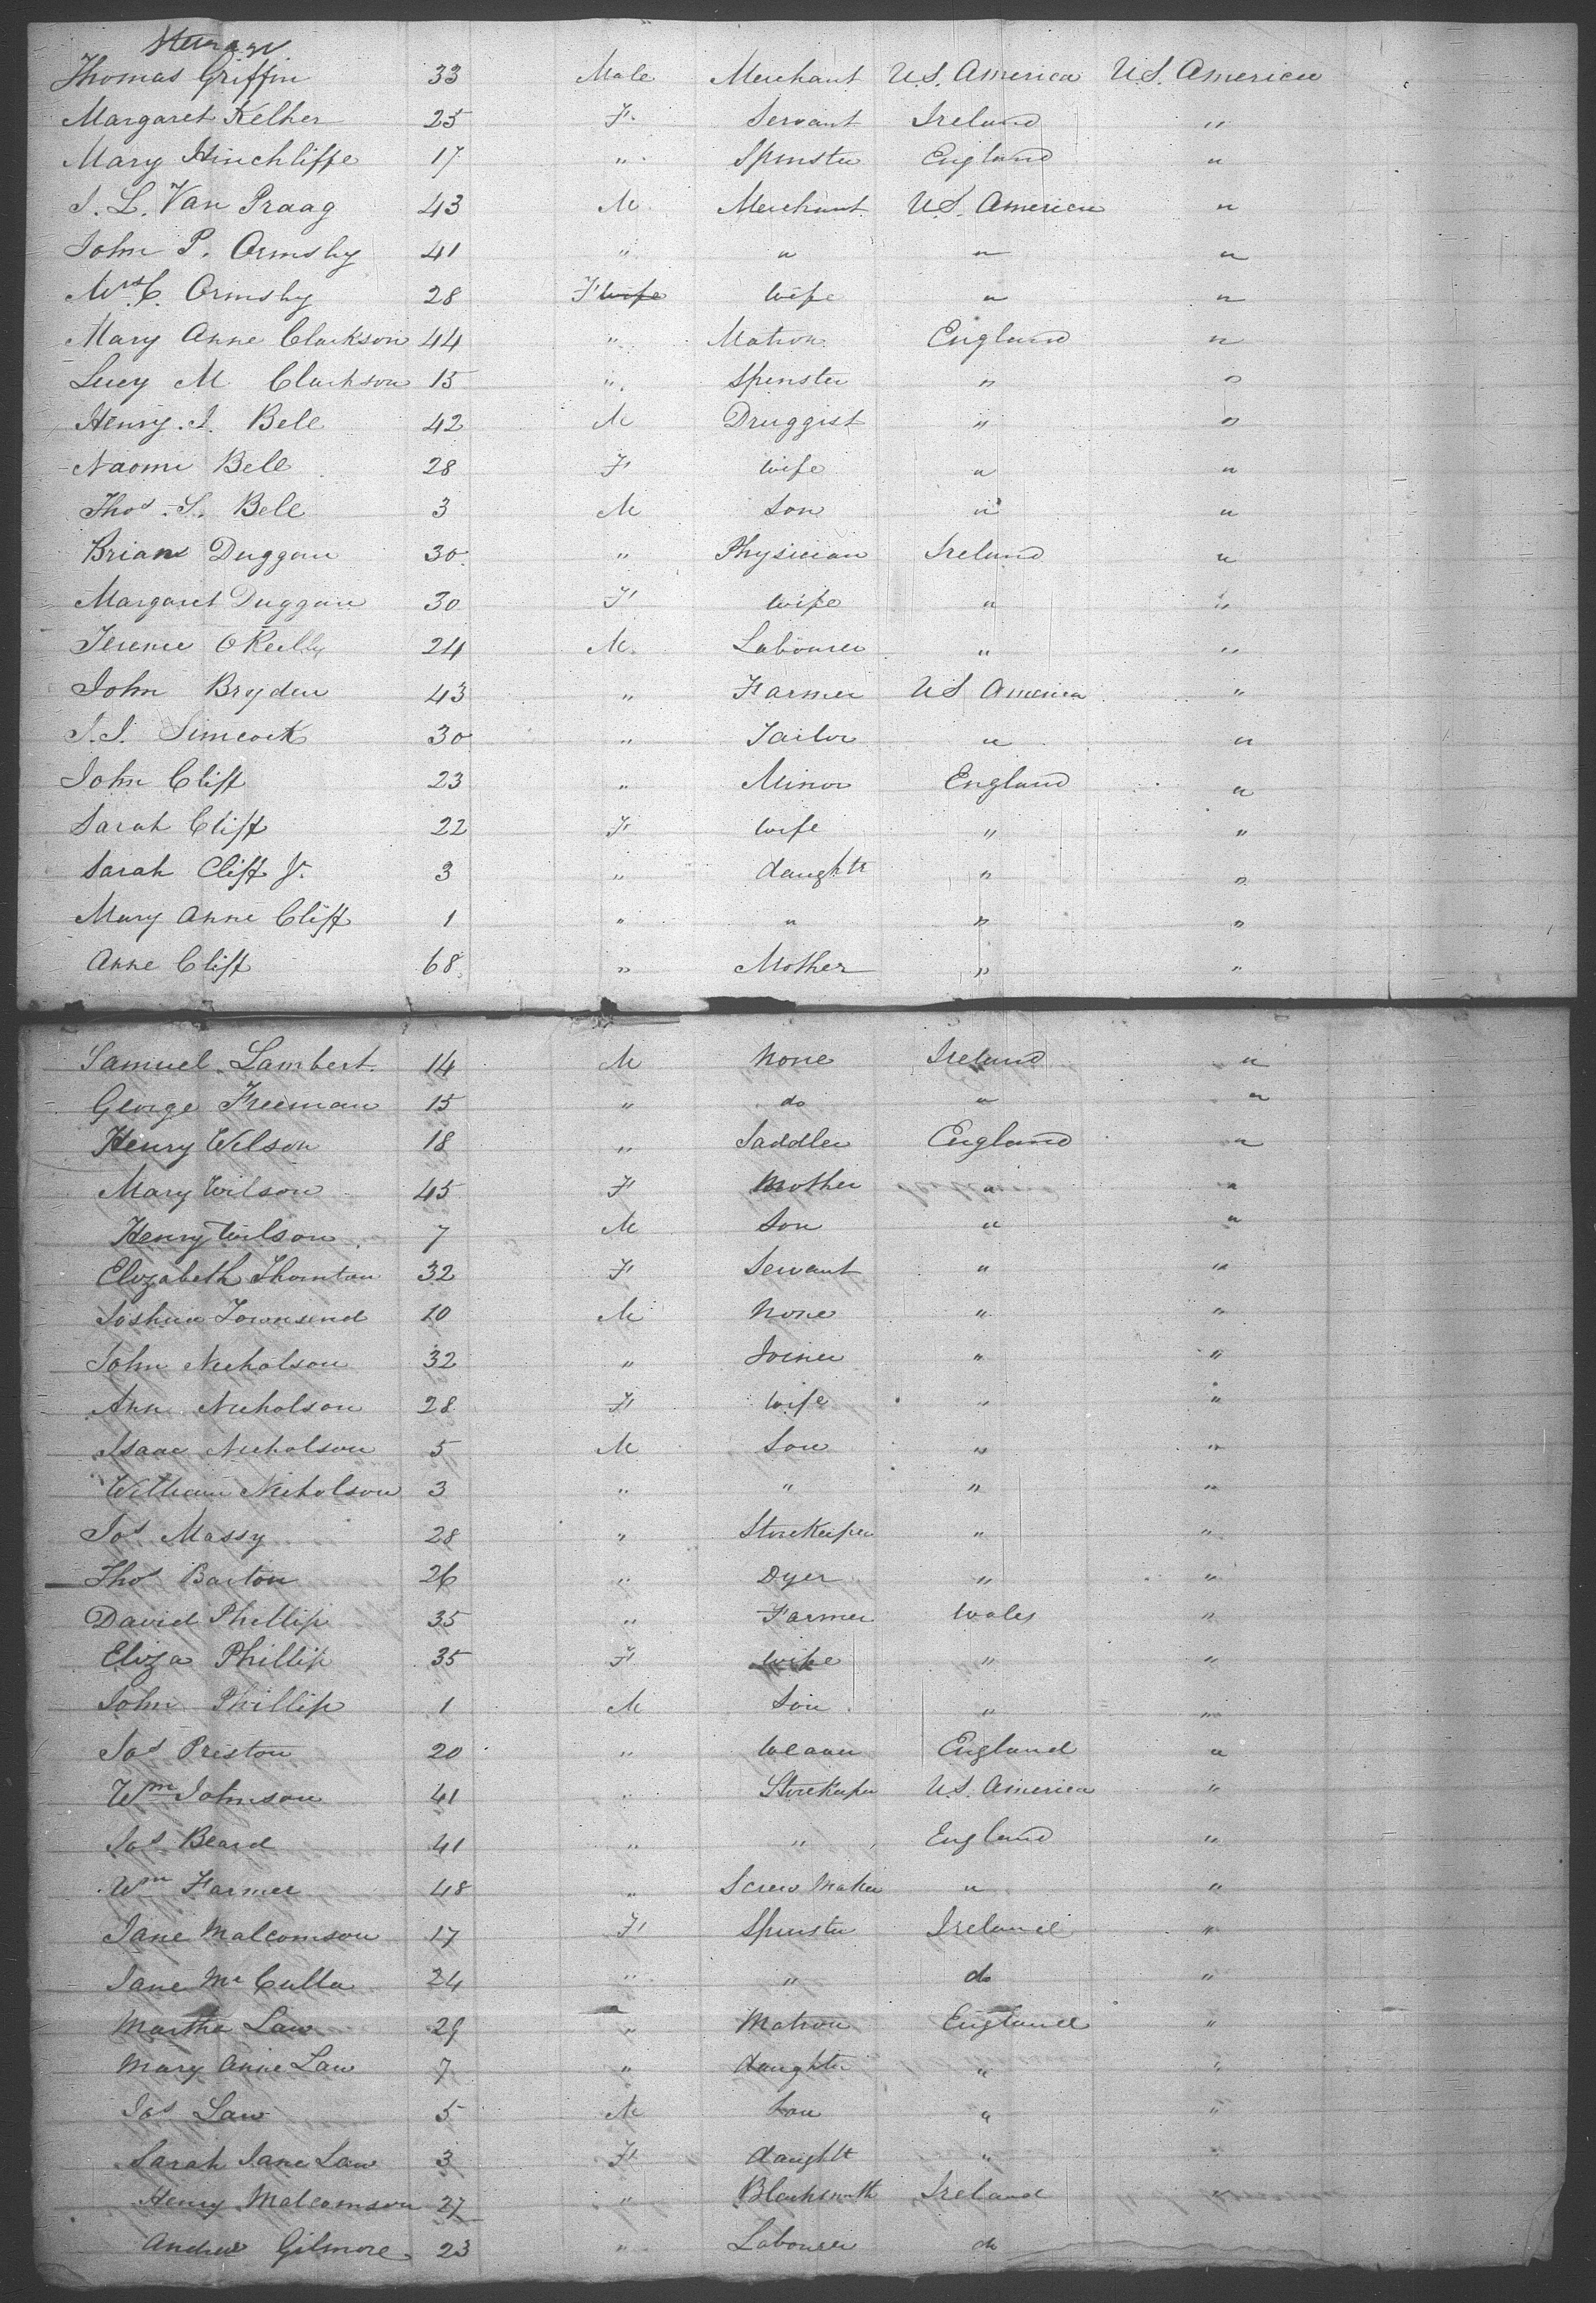 Steerage
Thomas Griffin 33 Male Merchant U.S. America U.S. America
Margaret Kelher 25 F. Servant Ireland "
Mary Hinchliffe 17 " Spinster England "
J. L. Van Praag 43 M Merchant U.S. America "
John P. Ormsby 41 " " " "
Mrs C. Ormsby 28 F wife wife " "
Mary Anne Clarkson 44 " Matron England "
Lucy M Clarkson 15 " Spinster " "
Henry. J. Bell 42 M Druggist " "
Naomi Bell 28 F wife " "
Thos. S. Bell 3 M Son " "
Brian Duggan 30 " Physician Ireland "
Margaret Duggan 30 F wife " "
Terence O Reilly 24 M. Labourer " "
John Bryden 43 " Farmer US America "
J.J. Simcock 30 " Tailor " "
John Cliff 23 " Minor England "
Sarah Cliff 22 F wife " "
Sarah Cliff Jr. 3 " daughtr " "
Mary Anne Cliff 1 " " " "
Anne Cliff 68 " Mother " "
Samuel Lambert 14 M None Ireland "
George Freeman 15 " do " "
Henry Wilson 18 " Saddler England "
Mary Wilson 45 F Mother " "
Henry Wilson 7 M Son " "
Elizabeth Thornton 32 F Servant " "
Joshua Townsend 10 M None " "
John Nicholson 32 " Joiner " "
Ann Nicholson 28 F wife " "
Isaac Nicholson 5 M Son " "
William Nicholson 3 " " " "
Jos Massy 28 " Storekeeper " "
Thos Barton 26 " Dyer " "
David Phillip 35 " Farmer Wales "
Eliza Phillip 35 F wife " "
John Phillip 1 M Son " "
Jos Preston 20 " Weaver England "
Wm Johnson 41 " Storekeeper U.S. America "
Jos Beard 41 " " England "
Wm Farmer 48 " Screw Maker " "
Jane Malcomson 17 F Spinster Ireland "
Jane Mc Culla 24 " " do "
Martha Law 29 " Matron England "
Mary Anne Law 7 " daughter " "
Jos Law 5 M Son " "
Sarah Jane Law 3 F daughtr " "
Henry Malcomson 27 " Blacksmith Ireland "
Andrew Gilmore 23 " Labourer do